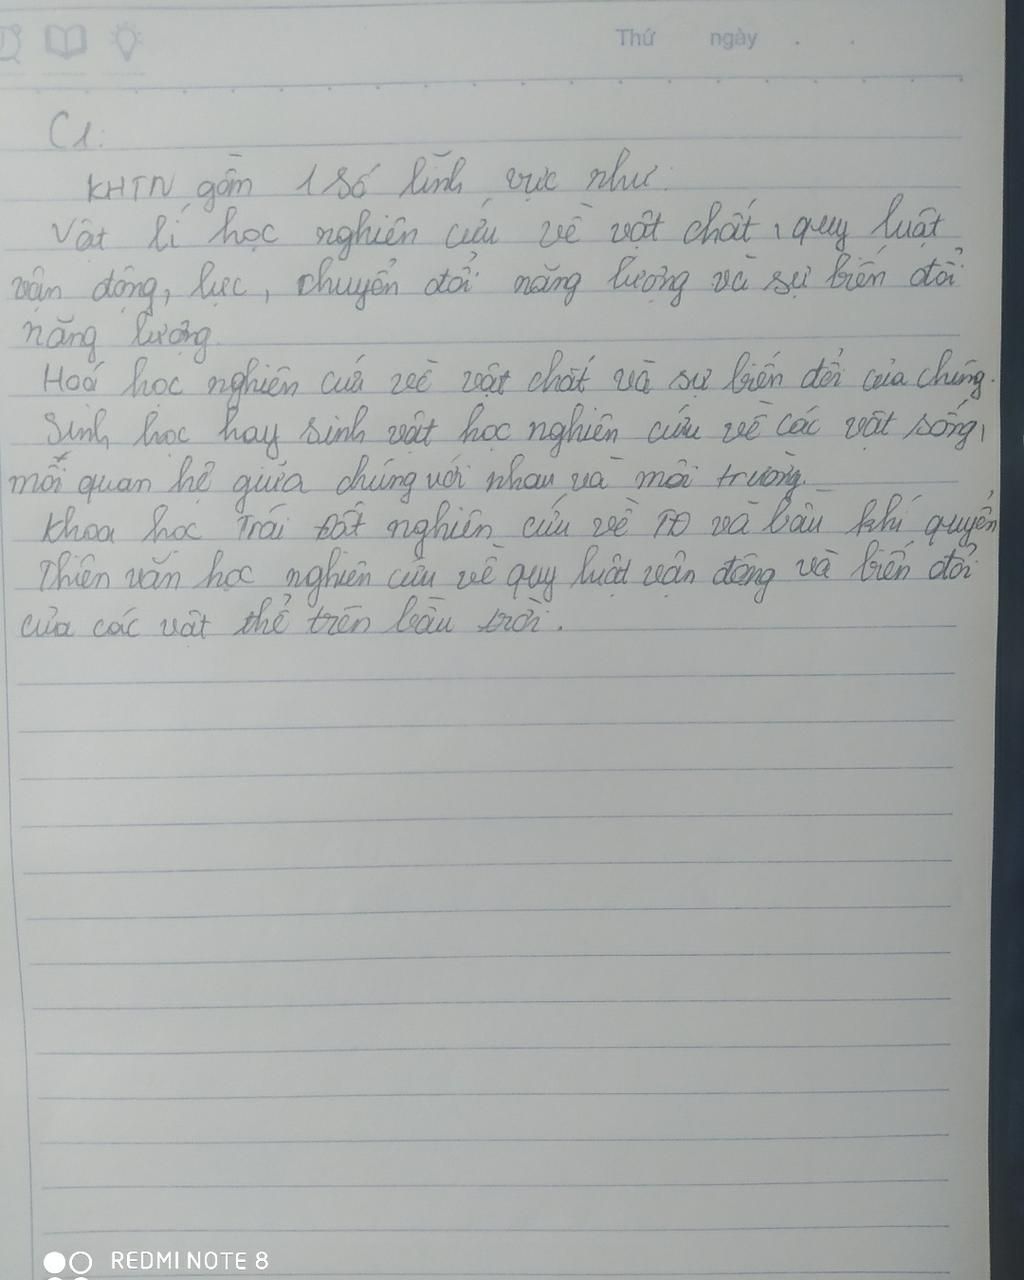 Thứ ngày . .
C1:
KHTN gồm 1 số lĩnh vực như:
Vật lí học nghiên cứu về vật chất, quy luật
vận động, lực, chuyển đổi năng lượng và sự biến đổi
năng lượng.
Hoá học nghiên cứu về vật chất và sự biến đổi của chúng.
Sinh học hay sinh vật học nghiên cứu về các vật sống,
mối quan hệ giữa chúng với nhau và môi trường.
Khoa học Trái Đất nghiên cứu về TĐ và bầu khí quyển
Thiên văn học nghiên cứu về quy luật vận động và biến đổi
của các vật thể trên bầu trời.
REDMI NOTE 8